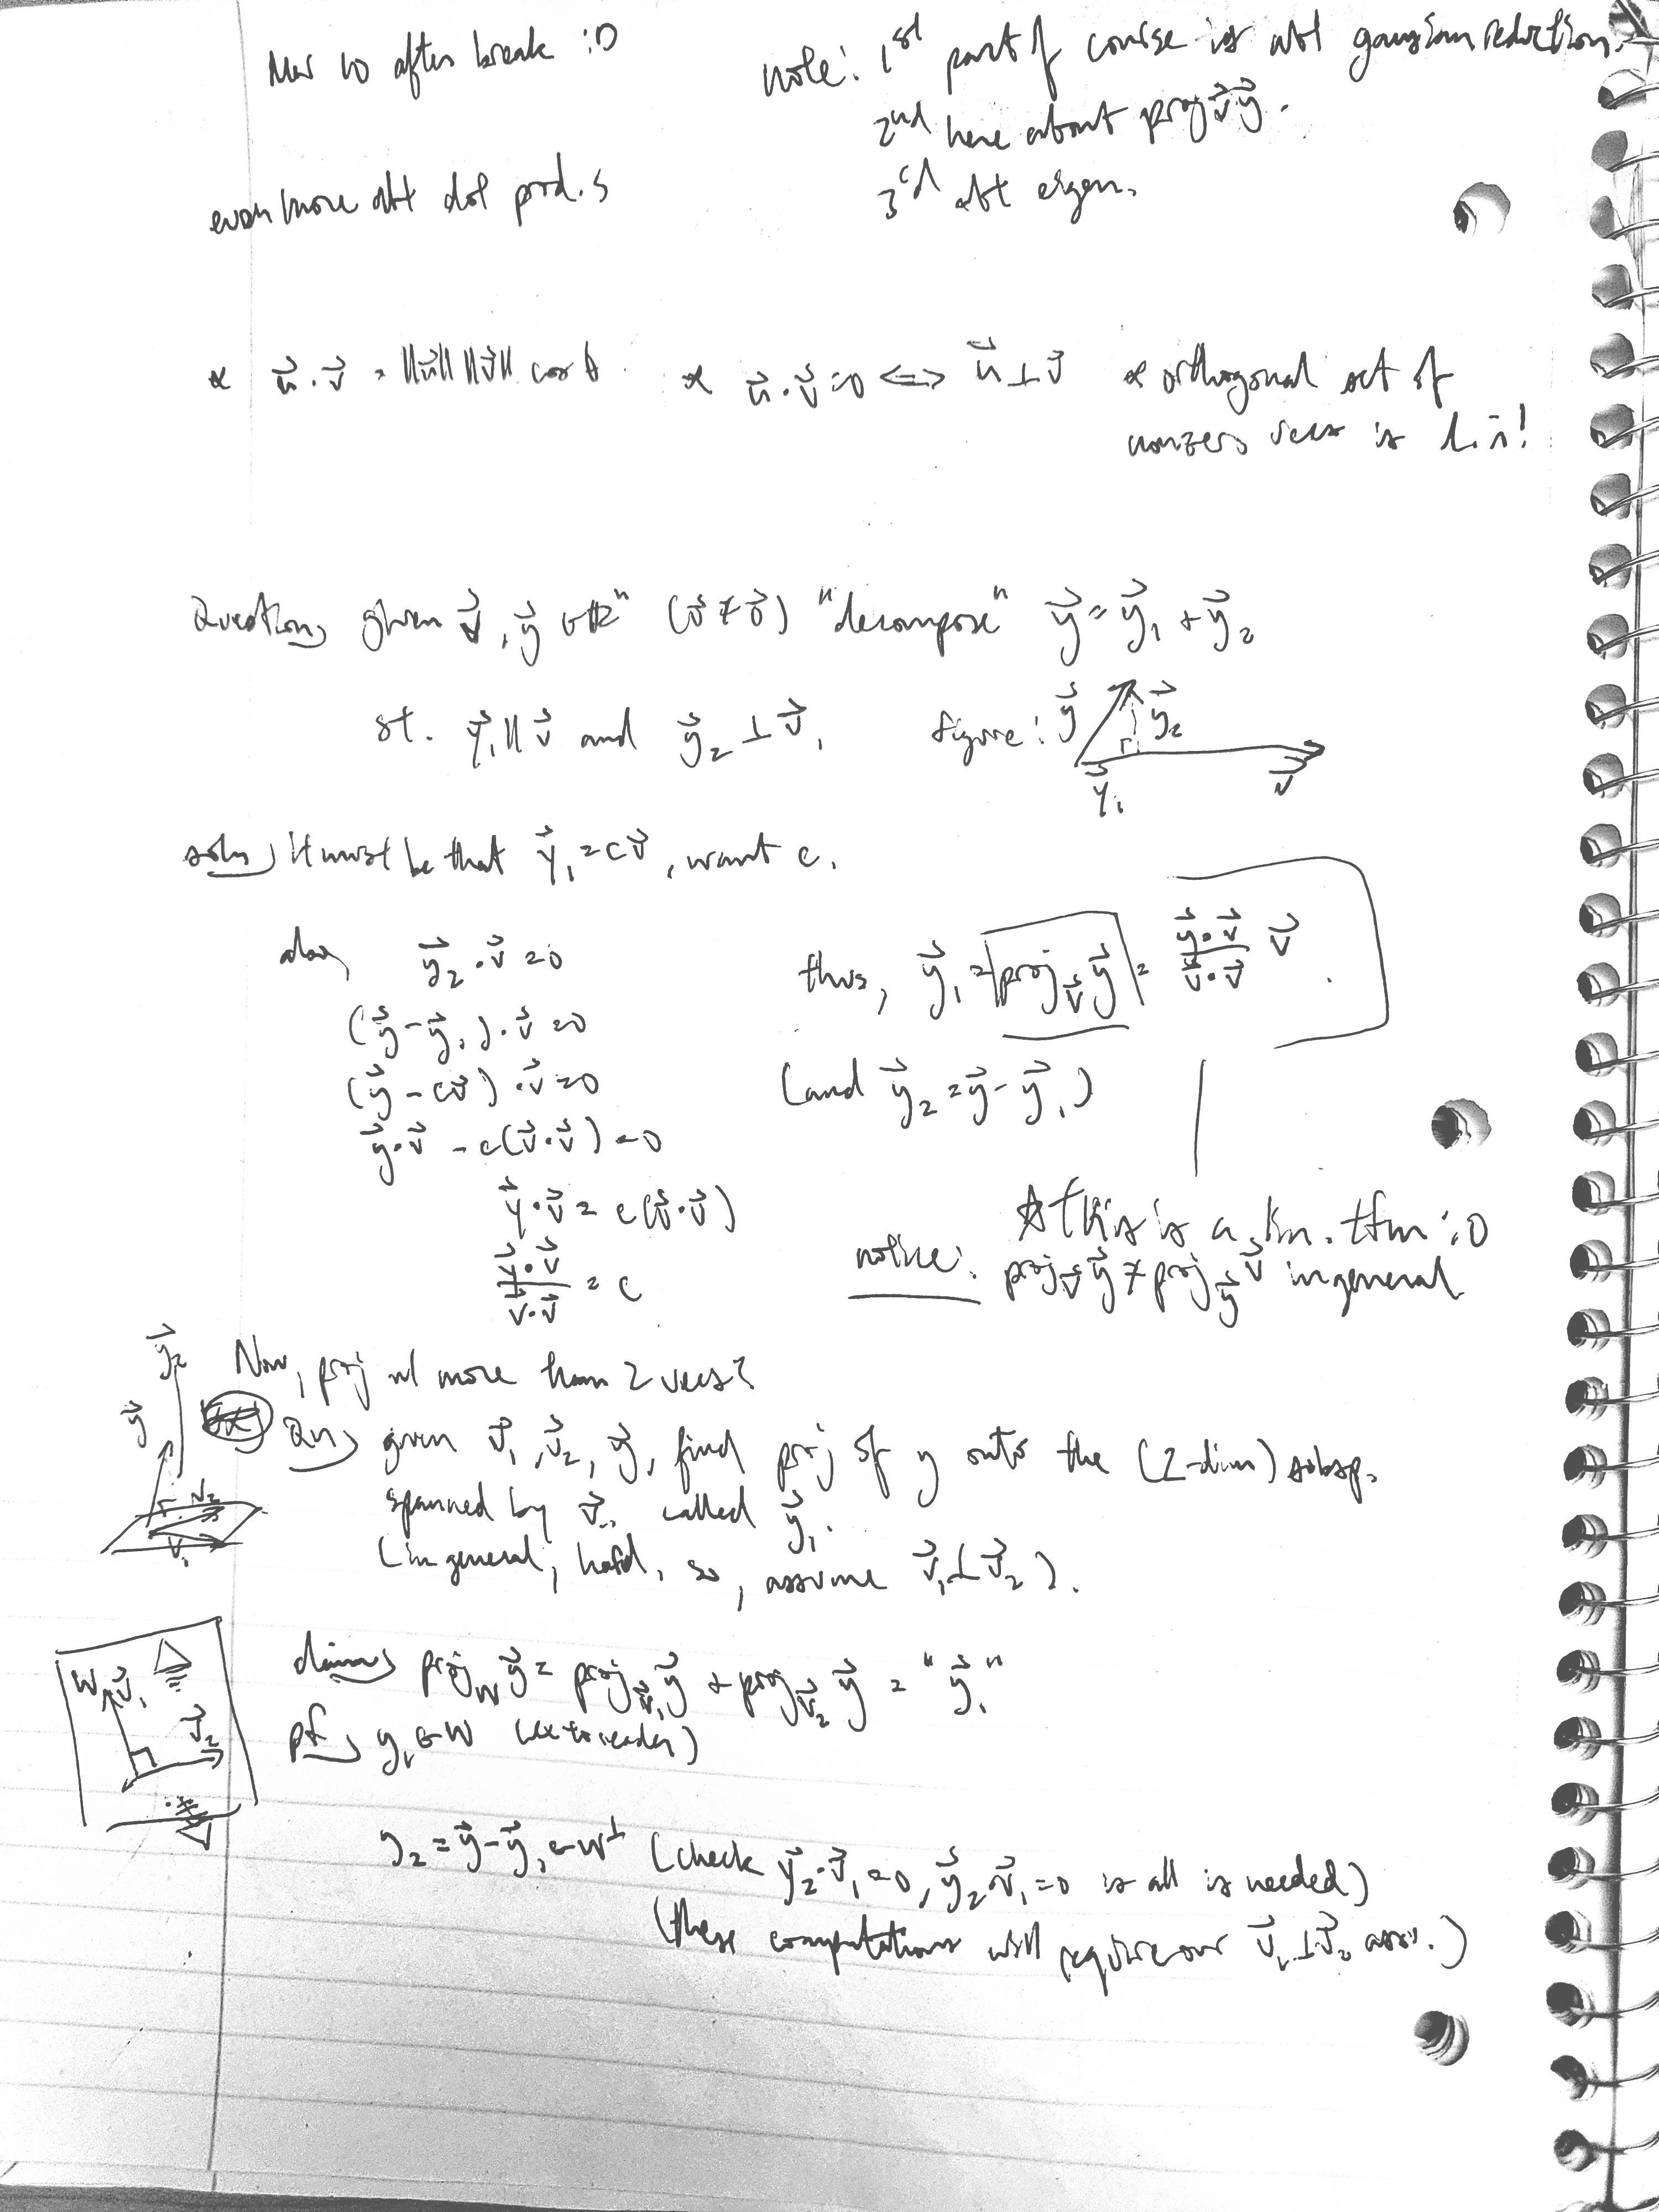 Mar 10 after break :D
note: 1st part of course is abt gaussian reduction.
2nd here about proj_v⃗ y⃗.
3rd abt eigen.
even more abt dot prod.s
* u⃗·v⃗ = ‖u⃗‖‖v⃗‖ cos θ
* u⃗·v⃗=0 <=> u⃗⊥v⃗
* orthogonal set of
nonzero vecs is l.i.!
Question) given v⃗, y⃗ ∈ ℝⁿ (v⃗≠0⃗) "decompose" y⃗ = y⃗₁ + y⃗₂
st. y⃗₁ ∥ v⃗ and y⃗₂ ⊥ v⃗.
figure: y⃗ y⃗₂ y⃗₁ v⃗
soln) It must be that y⃗₁ = cv⃗, want c.
also, y⃗₂·v⃗ = 0
(y⃗-y⃗₁)·v⃗ = 0
(y⃗-cv⃗)·v⃗ = 0
y⃗·v⃗ - c(v⃗·v⃗) = 0
y⃗·v⃗ = c(v⃗·v⃗)
y⃗·v⃗ / v⃗·v⃗ = c
thus, y⃗₁ = proj_v⃗ y⃗ = y⃗·v⃗ / v⃗·v⃗ v⃗.
(and y⃗₂ = y⃗-y⃗₁)
☆ This is a lin. tfm :O
notice: proj_v⃗ y⃗ ≠ proj_y⃗ v⃗ in general
Now, proj w/ more than 2 vecs?
y⃗₂ y⃗ v₂ v₁
Qn) given v⃗₁, v⃗₂, y⃗, find proj of y onto the (2-dim) subsp.
spanned by v⃗.. called y⃗₁.
(in general, hard, so, assume v⃗₁⊥v⃗₂).
W v⃗₁ v⃗₂
claim) proj_W y⃗ = proj_v⃗₁ y⃗ + proj_v⃗₂ y⃗ = "y⃗₁"
pf) y₁ ∈ W (ex to reader)
y₂ = y⃗-y⃗₁ ∈ W^⊥ (check y⃗₂·v⃗₁=0, y⃗₂·v⃗₁=0 is all is needed)
(these computations will require our v⃗₁⊥v⃗₂ ass.)